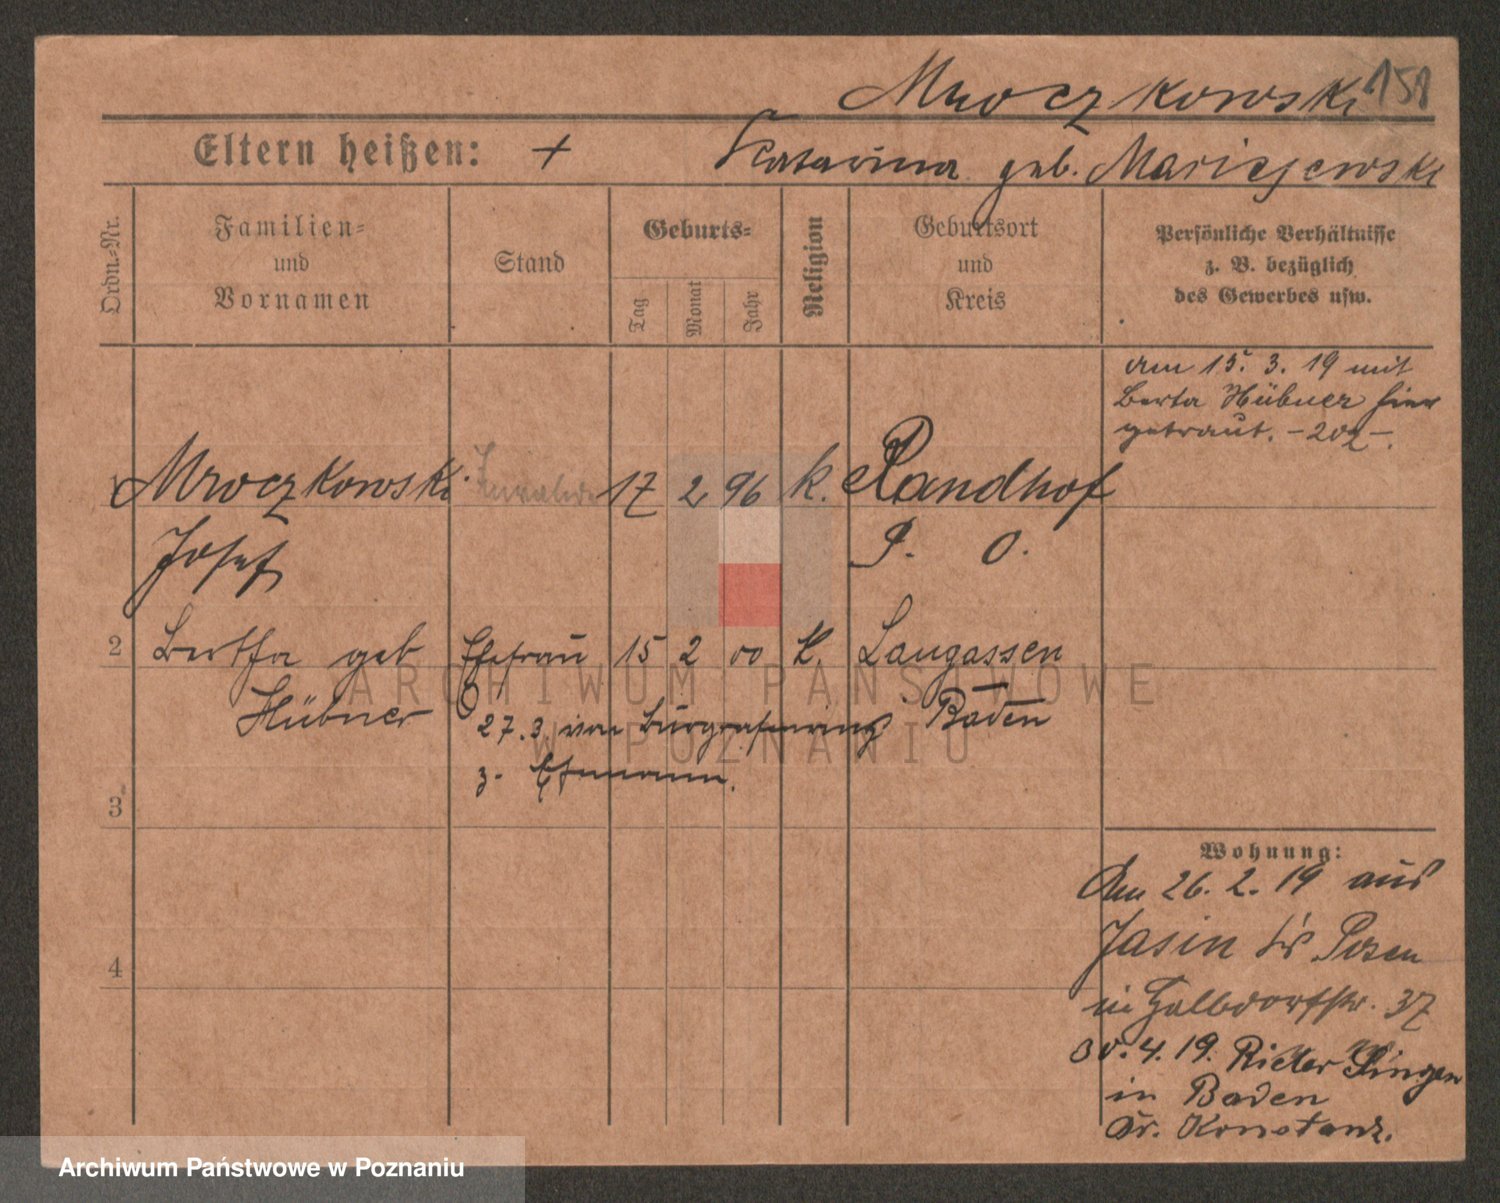 Mroczkowski 151
Eltern heißen: + Katarina geb. Maricejewski
Ordn.-Nr.
Familien=
und
Vornamen
Stand
Geburts=
Tag
Monat
Jahr
Religion
Geburtsort
und
Kreis
Persönliche Verhältnisse
z. B. bezüglich
des Gewerbes usw.
am 15. 3. 19 mit
Berta Hübner hier
getraut. -202-.
1 Mroczkowski Invalide 17 2 96 k. Randhof
Josef P. O.
2 Bertha geb Ehefrau 15 2 00 k. Langassen
Hübner Baden
27. 3. von Burggrafenring
z. Ehemann.
3
4
Wohnung:
Am 26. 2. 19 aus
Jasin Kr Posen
in Halbdorfstr. 37
30. 4. 19. Singen
in Baden
Kr. Konstanz.
ARCHIWUM PAŃSTWOWE
W POZNANIU
Archiwum Państwowe w Poznaniu